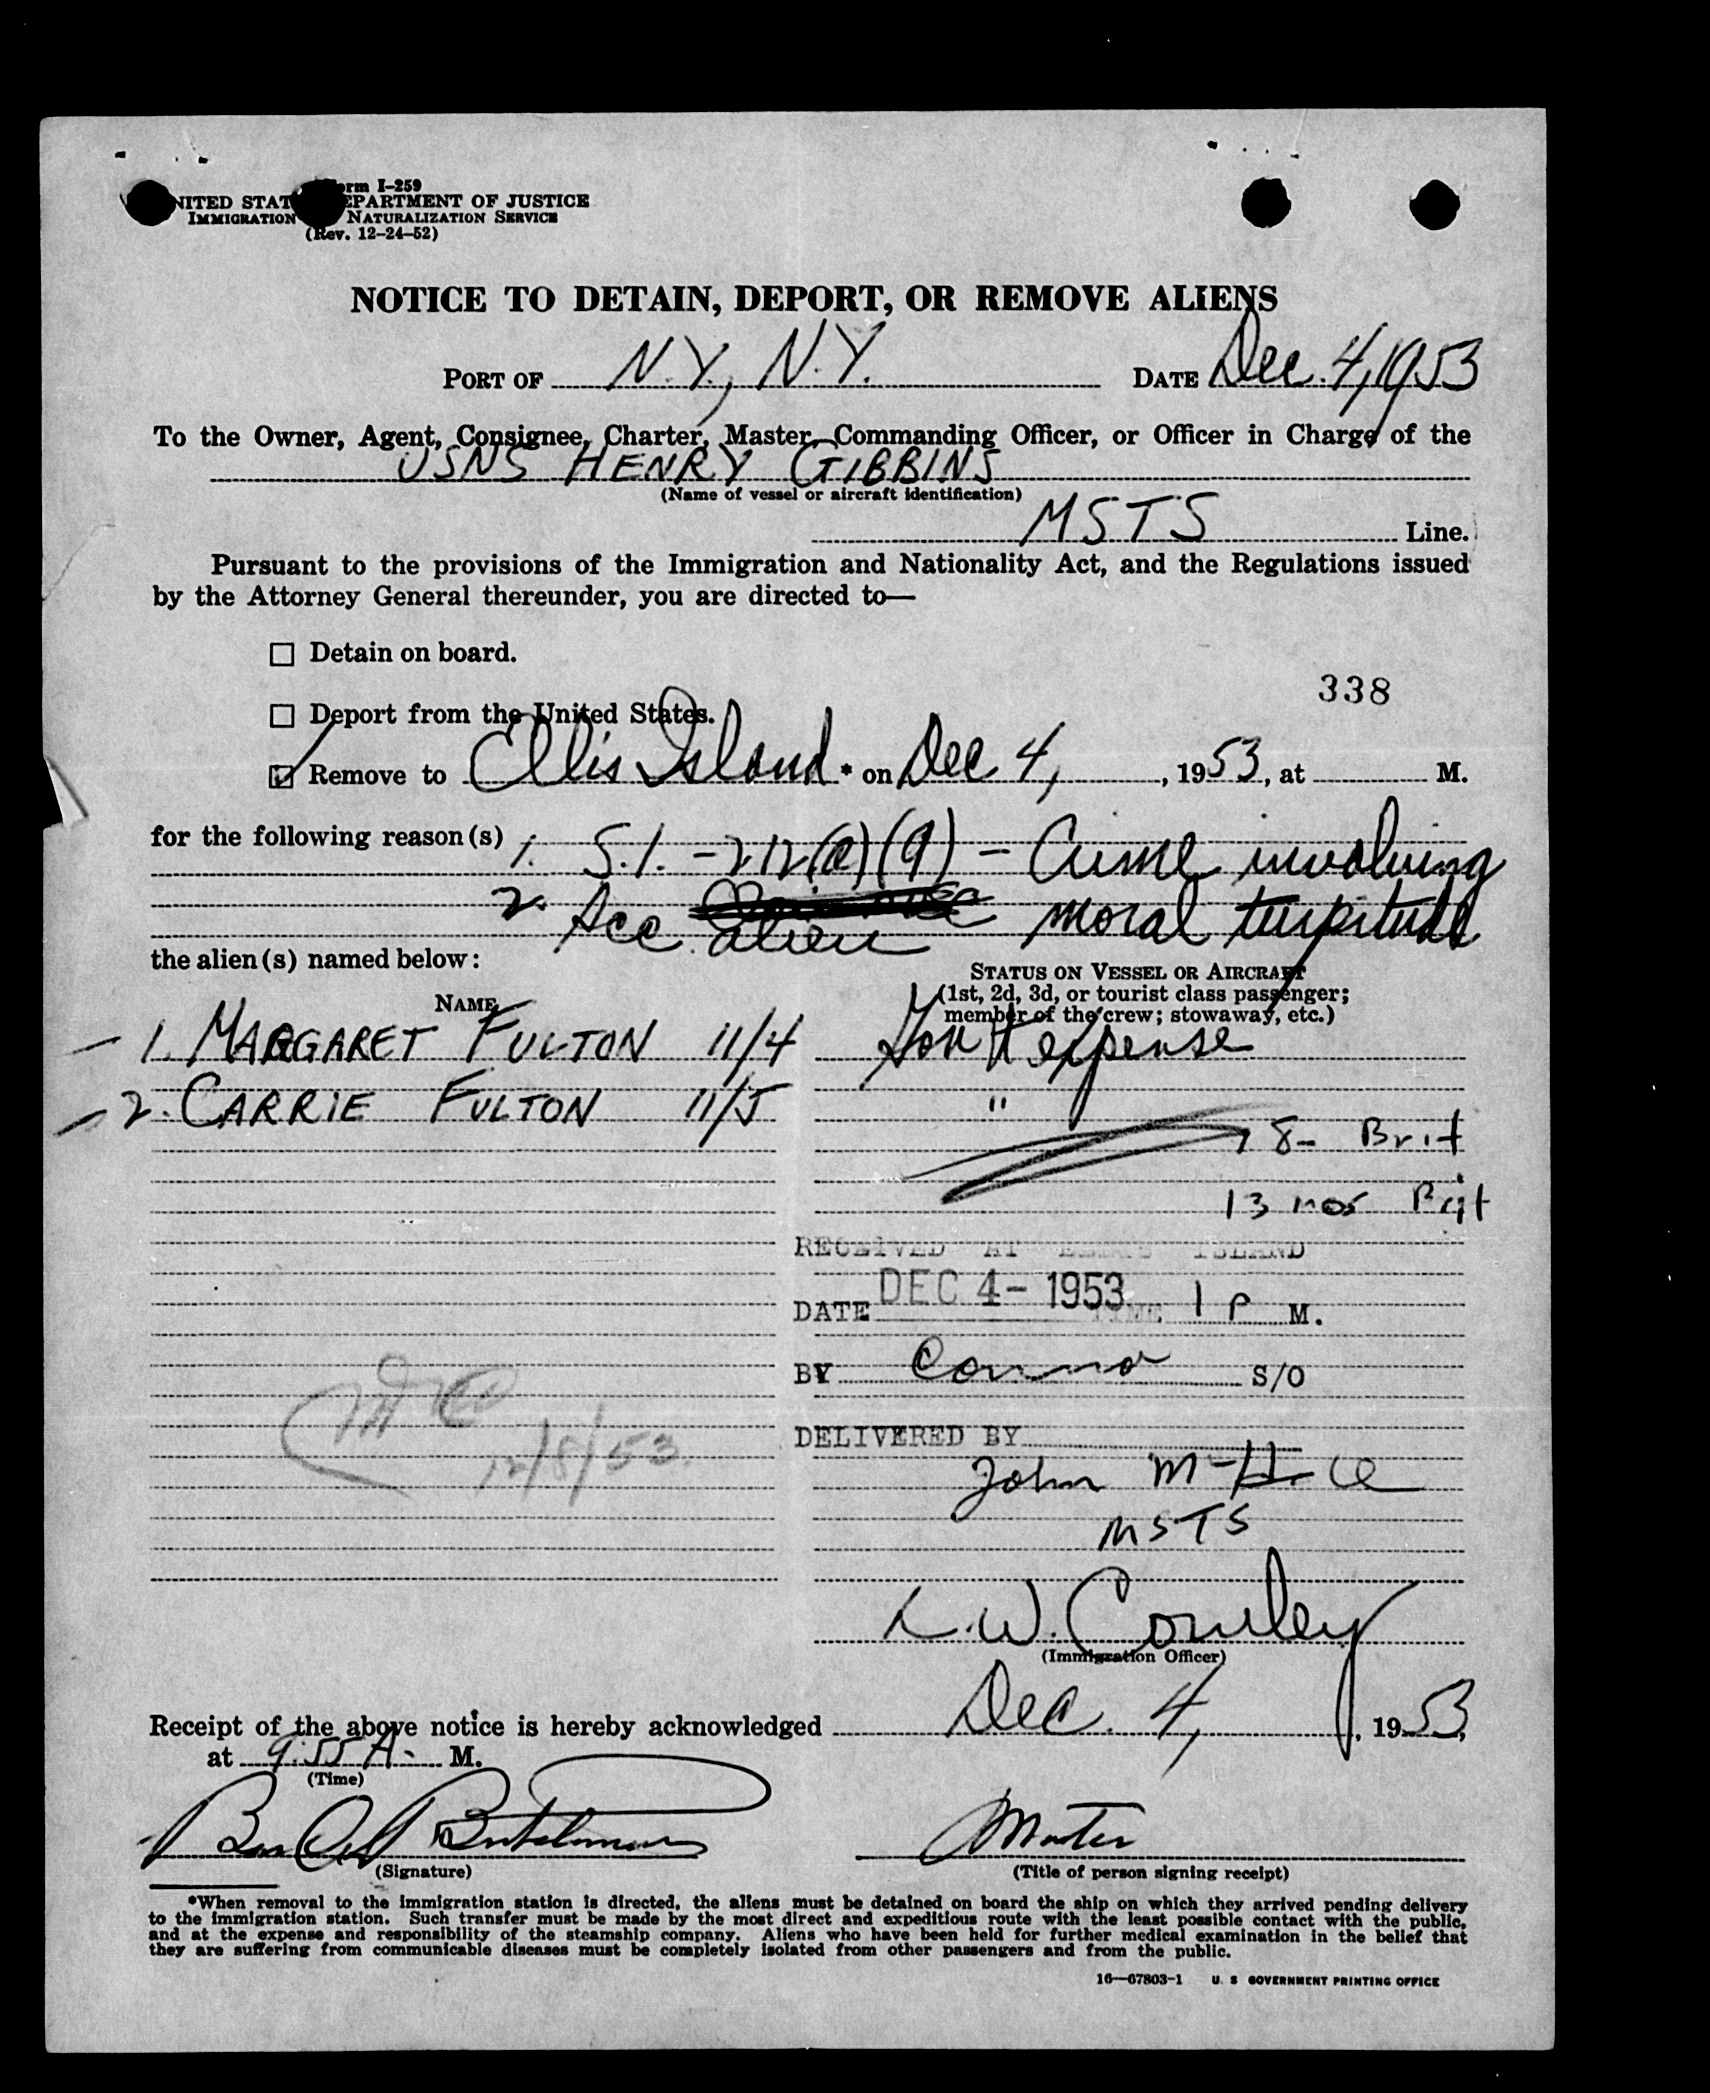 Form I-259
UNITED STATES DEPARTMENT OF JUSTICE
IMMIGRATION NATURALIZATION SERVICE
(Rev. 12-24-52)
NOTICE TO DETAIN, DEPORT, OR REMOVE ALIENS
PORT OF N.Y., N.Y. DATE Dec. 4, 1953
To the Owner, Agent, Consignee, Charter, Master, Commanding Officer, or Officer in Charge of the
USNS HENRY GIBBINS
(Name of vessel or aircraft identification)
MSTS Line.
Pursuant to the provisions of the Immigration and Nationality Act, and the Regulations issued
by the Attorney General thereunder, you are directed to—
☐ Detain on board.
338
☐ Deport from the United States.
☑ Remove to Ellis Island * on Dec 4, , 1953, at M.
for the following reason(s) 1. S.I. - 212(a)(9) - Crime involving
2. Acc. alien moral turpitude
the alien(s) named below:
STATUS ON VESSEL OR AIRCRAFT
NAME (1st, 2d, 3d, or tourist class passenger;
member of the crew; stowaway, etc.)
1. MARGARET FULTON 11/4 Gov't expense
2. CARRIE FULTON 11/5 "
8- Brit
13 mos Brit
RECEIVED AT ELLIS ISLAND
DATE DEC 4- 1953 TIME 1 P M.
BY S/O
12/8/53.
DELIVERED BY
John
MSTS
L.W. Cowley
(Immigration Officer)
Receipt of the above notice is hereby acknowledged Dec. 4, , 1953,
at 9:55 A. M.
(Time)
Master
(Signature) (Title of person signing receipt)
*When removal to the immigration station is directed, the aliens must be detained on board the ship on which they arrived pending delivery
to the immigration station. Such transfer must be made by the most direct and expeditious route with the least possible contact with the public,
and at the expense and responsibility of the steamship company. Aliens who have been held for further medical examination in the belief that
they are suffering from communicable diseases must be completely isolated from other passengers and from the public.
16—67803-1 U. S GOVERNMENT PRINTING OFFICE